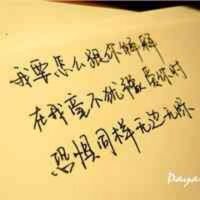 我要怎么跟你解释
在我毫不犹豫爱你时
恐惧同样无边无际
Daya